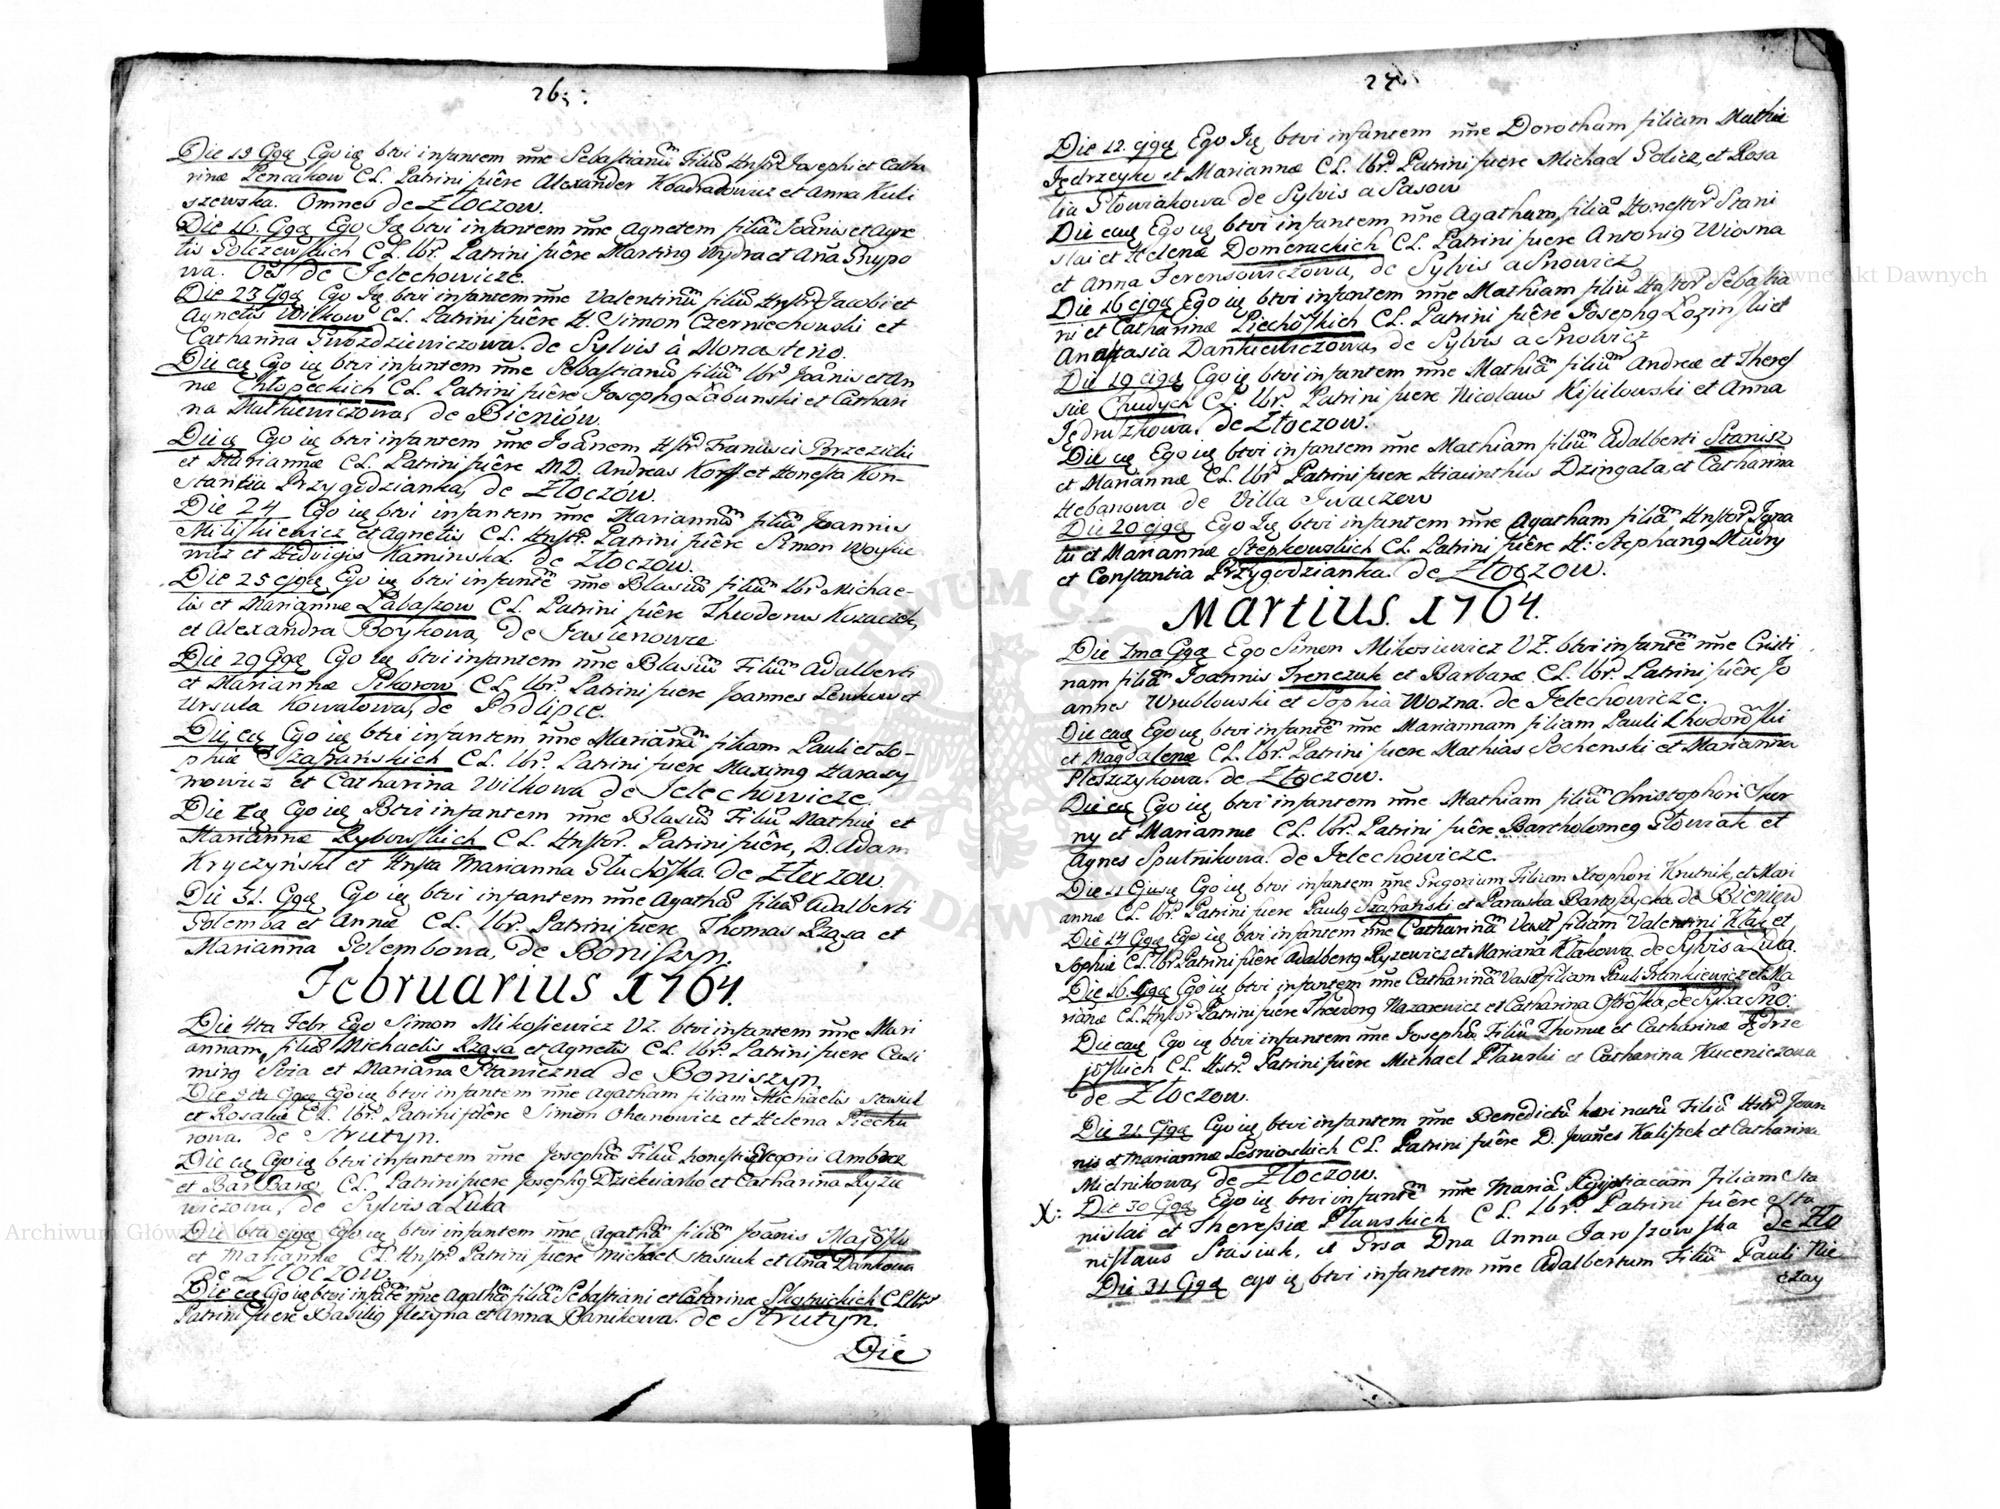 26.
Die 19 Ggę Ego ię btvi infantem nne Sebastianu Filiu Hnstor Josephi et Catha
rinæ Pencakow CL. Patrini fuêre Alexander Kondradowicz et Anna Kuli
szewska. Omnes de Złoczow.
Die 16 Ggę Ego Ię btvi infantem nne Agnetem filia Joânis et Agne
tis Golczewskich CL. lbr. Patrini fuêre Martinq Wydra et Aña Grypo
wa. Oes de Jelechowicze.
Die 23 Ggę Ego Ię btvi infantem nne Valentinu filiu Hnstor Jacobi et
Agnetis Wilkow CL. Patrini fuêre H. Simon Czerniechowski et
Catharina Gwozdziewiczowa de Sylvis à Monasterio.
Die eę Ego ię btvi infantem nne Sebastianu filiu lbr. Joânis et An
næ Chłopeckich CL. Patrini fuêre Josephq Łabunski et Cathari
na Mathiewiczowa, de Bieniów.
Die ę Ego ię btvi infantem nne Joânem Hstr Francisci Brzezicki
et Mariannæ CL. Patrini fuêre MD. Andreas Korff et Honesta Kon-
stantia Przygodzianka, de Złoczów.
Die 24 Ego ię btvi infantem nne Mariannam filia Joannis
Miliskiewicz et Agnetis CL. Hnstr. Patrini fuêre Simon Woykie
wicz et Hedvigis Kaminska. de Złoczow.
Die 25 ejgę Ego ię btvi infantê nne Blasiu filiu lbr Michae-
lis et Mariannæ Łabaszow CL. Patrini fuêre Theodorus Kozaczek,
et Alexandra Boykowa, de Jasienowce
Die 29 Ggę Ego ię btvi infantem nne Blasiu Filium Adalberti
et Mariannæ Sikorow CL. lbr. Patrini fuere Joannes Lewkow et
Ursula Kowalowa, de Podlipce.
Die eę Ego ię btvi infantem nne Mariana filiam Pauli et So-
phiæ Szafranskich CL. lbr. Patrini fuere Maximq Harasy
mowicz et Catharina Wilkowa de Jelechowicze.
Die eę Ego ię Btvi infantem nne Blasiu Filiu Mathiæ et
Mariannæ Rybowskich CL. Hnstor. Patrini fuêre, D. Adam
Kryczyński et Hnsta Marianna Głuchoska de Złoczow.
Die 31. Ggę Ego ię btvi infantem nne Agatha filia Adalberti
Golemba et Annæ CL. lbr. Patrini fuere Thomas Rząsa et
Marianna Golembowa, de Boniszyn.
Februarius 1764.
Die 4ta Febr. Ego Simon Mikosiewicz VZ. btvi infantem nne Mari
annam, filia Michaelis Rząsa et Agnetis CL. lbr. Patrini fuere Casi
mirq Sría et Mariana Staniczna de Boniszyn.
Die 5ta Ggę Ego ię btvi infantem nne Agatham filiam Michaelis Stasiuk
et Rosaliæ CL. lbr. Patrini fuêre Simon Ohanowicz et Helena Piechu
rowa. de Strutyn.
Die eę Ego ię btvi infantem nne Josephu Filiu honesti Gregorii Ambroz
et Barbaræ, CL. Patrini fuere Josephq Dziekiarko et Catharina Ryzie
wiczowa, de Sylvis a Luka
Die 6ta ejgę Ego ię btvi infantem nne Agatha filia Joânis Majoski
et Mariannæ CL. Hnstr. Patrini fuere Michael Stasiuk et Aña Dankowa
de Złoczow.
Die eę Ego ię btvi infantê nne Agatha filia Sebastiani et Catarinæ Skotnickich CL lbr
Patrini fuere Basiliq Jlczyna et Anna Banikowa. de Strutyn.
Die
27.
Die 12. ejgę Ego Ię btvi infantem nne Dorotham filiam Mathiæ
Jędrzeyki et Mariannæ CL. lbr. Patrini fuere Michael Golicz, et Rosa
lia Głowiakowa de Sylvis a Sasow
Die eaę Ego ię btvi infantem nne Agatham, filia Honestor Stani
slai et Helenæ Domerackich CL. Patrini fuere Antoniq Wiosna
et Anna Ferensowiczowa, de Sylvis a Snowicz
Die 16 ejgę Ego ię btvi infantem nne Mathiam filiu Hnstor Sebastia
ni et Catharinæ Piechoskich CL. Patrini fuêre Josephq Łozinski et
Anastasia Dankiewiczowa, de Sylvis a Snowicz
Die 19 ejgę Ego ię btvi infantem nne Mathia filium Andreæ et There
siæ Chudych CL. lbr. Patrini fuere Nicolaus Kisielowski et Anna
Jędruszkowa, de Złoczow.
Die eę Ego ię btvi infantem nne Mathiam filiu Adalberti Stanisz
et Mariannæ CL. lbr Patrini fuere Hiacinthus Dzingała, et Catharina
Hebanowa de Villa Jwaczow
Die 20 ejgę Ego Ię btvi infantem nne Agatham filia Hnstor Igna
tii et Mariannæ Stepkowskich CL. Patrini fuêre H: Stephanq Mudry
et Constantia Przygodzianka. de Złoczow.
Martius. 1764.
Die 7ma Ggę Ego Simon Mikosiewicz VZ. btvi infantê nne Cristi
nam filia Joannis Frenczuk et Barbaræ CL. lbr. Patrini fuêre Jo
annes Wrublowski et Sophia Wozna. de Jelechowicze.
Die eaę Ego ię btvi infantê nne Mariannam filiam Pauli Chodoroski
et Magdalenæ CL. lbr. Patrini fuere Mathias Sochenski et Marianna
Pleszczykowa. de Złoczow.
Die eę Ego ię btvi infantem nne Mathiam filiu Christophori Czer
ny et Mariannæ CL. lbr. Patrini fuêre Bartholomeq Głowiak et
Agnes Sputnikowa. de Jelechowicze.
Die 11 Ejusę Ego ię btvi infantem nne Gregorium Filium Xtophori Krutnik, et Mari
annæ CL. lbr. Patrini fuere Paulq Szafranski et Paraska Bartoszycka. de Bieniow
Die 14 Ggę Ego ię btvi infantem nne Catharina Vast filiam Valentini Kłak et
Sophiæ CL. lbr Patrini fuêre Adalbertq Ryzewicz et Mariana Kłakowa de Sylvis a Luka.
Die 16. Ggę Ego ię btvi infantem nne Catharina Vast filiam Pauli Jrlinkiewicz et Ma
rianæ CL. Hnstor Patrini fuere Theodorq Nazarewicz et Catharina Ostroska, de Syl. a Sno:
Die eaę Ego ię btvi infantem nne Josephu Filiu Thomæ et Catharinæ Jędrze
joskich CL. Hstr. Patrini fuêre Michael Pławski et Catharina Kuceniczowa
de Złoczow.
Die 21. Ejgę Ego ię btvi infantem nne Benedictu heri natu Filiu Hstr Joan
nis et Mariannæ Lesniowskich CL. Patrini fuêre D. Joañes Kaliszek et Catharina
Mielnikowa, de Złoczow.
X: Die 30 Ggę Ego ię btvi infantê nne Maria Egyptiacam Filiam Sta
nislai et Theresiæ Pławskich CL. lbr. Patrini fuêre Sta
nislaus Stasiuk, et Grsa Dna Anna Jaroszowska de Zło
Die 31 Ggę Ego ię btvi infantem nne Adalbertum Filiu Pauli Nie
czay
Archiwum Główne Akt Dawnych